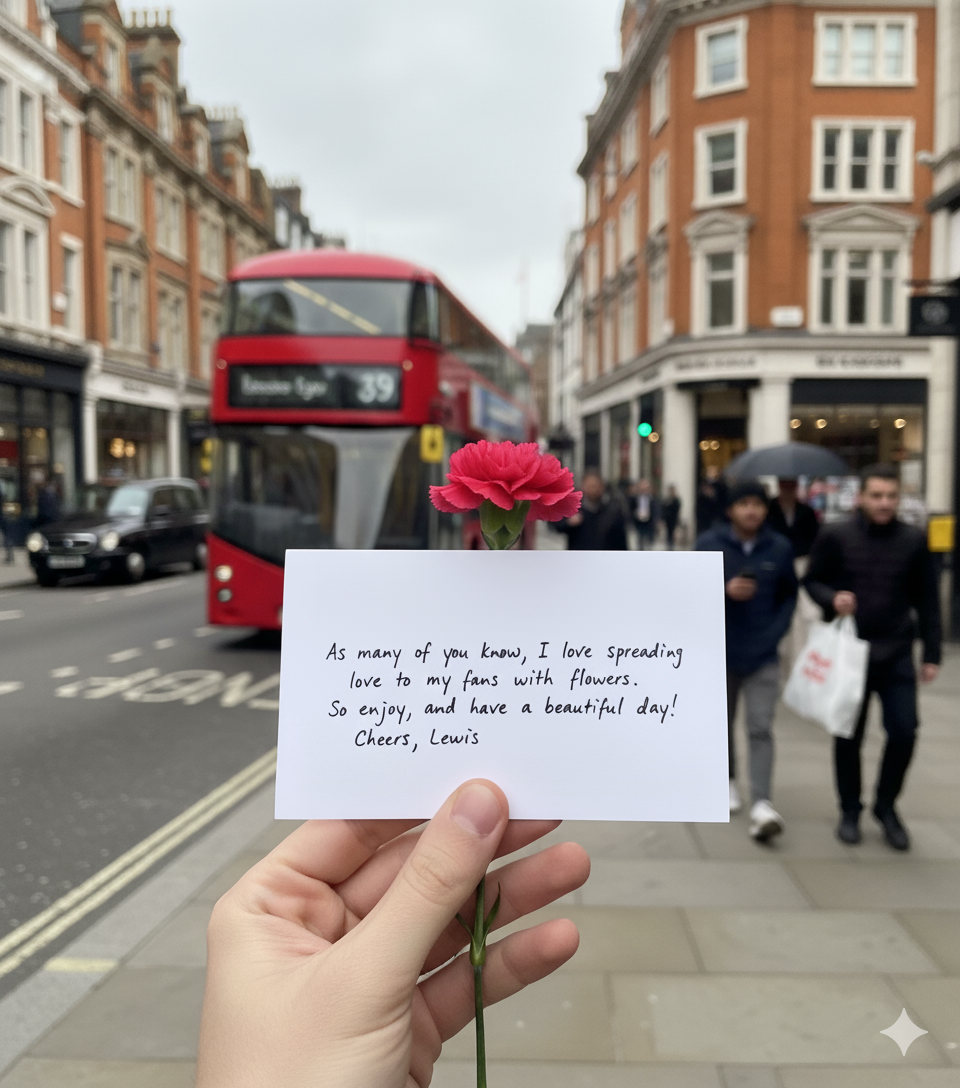 39
As many of you know, I love spreading
love to my fans with flowers.
So enjoy, and have a beautiful day!
Cheers, Lewis